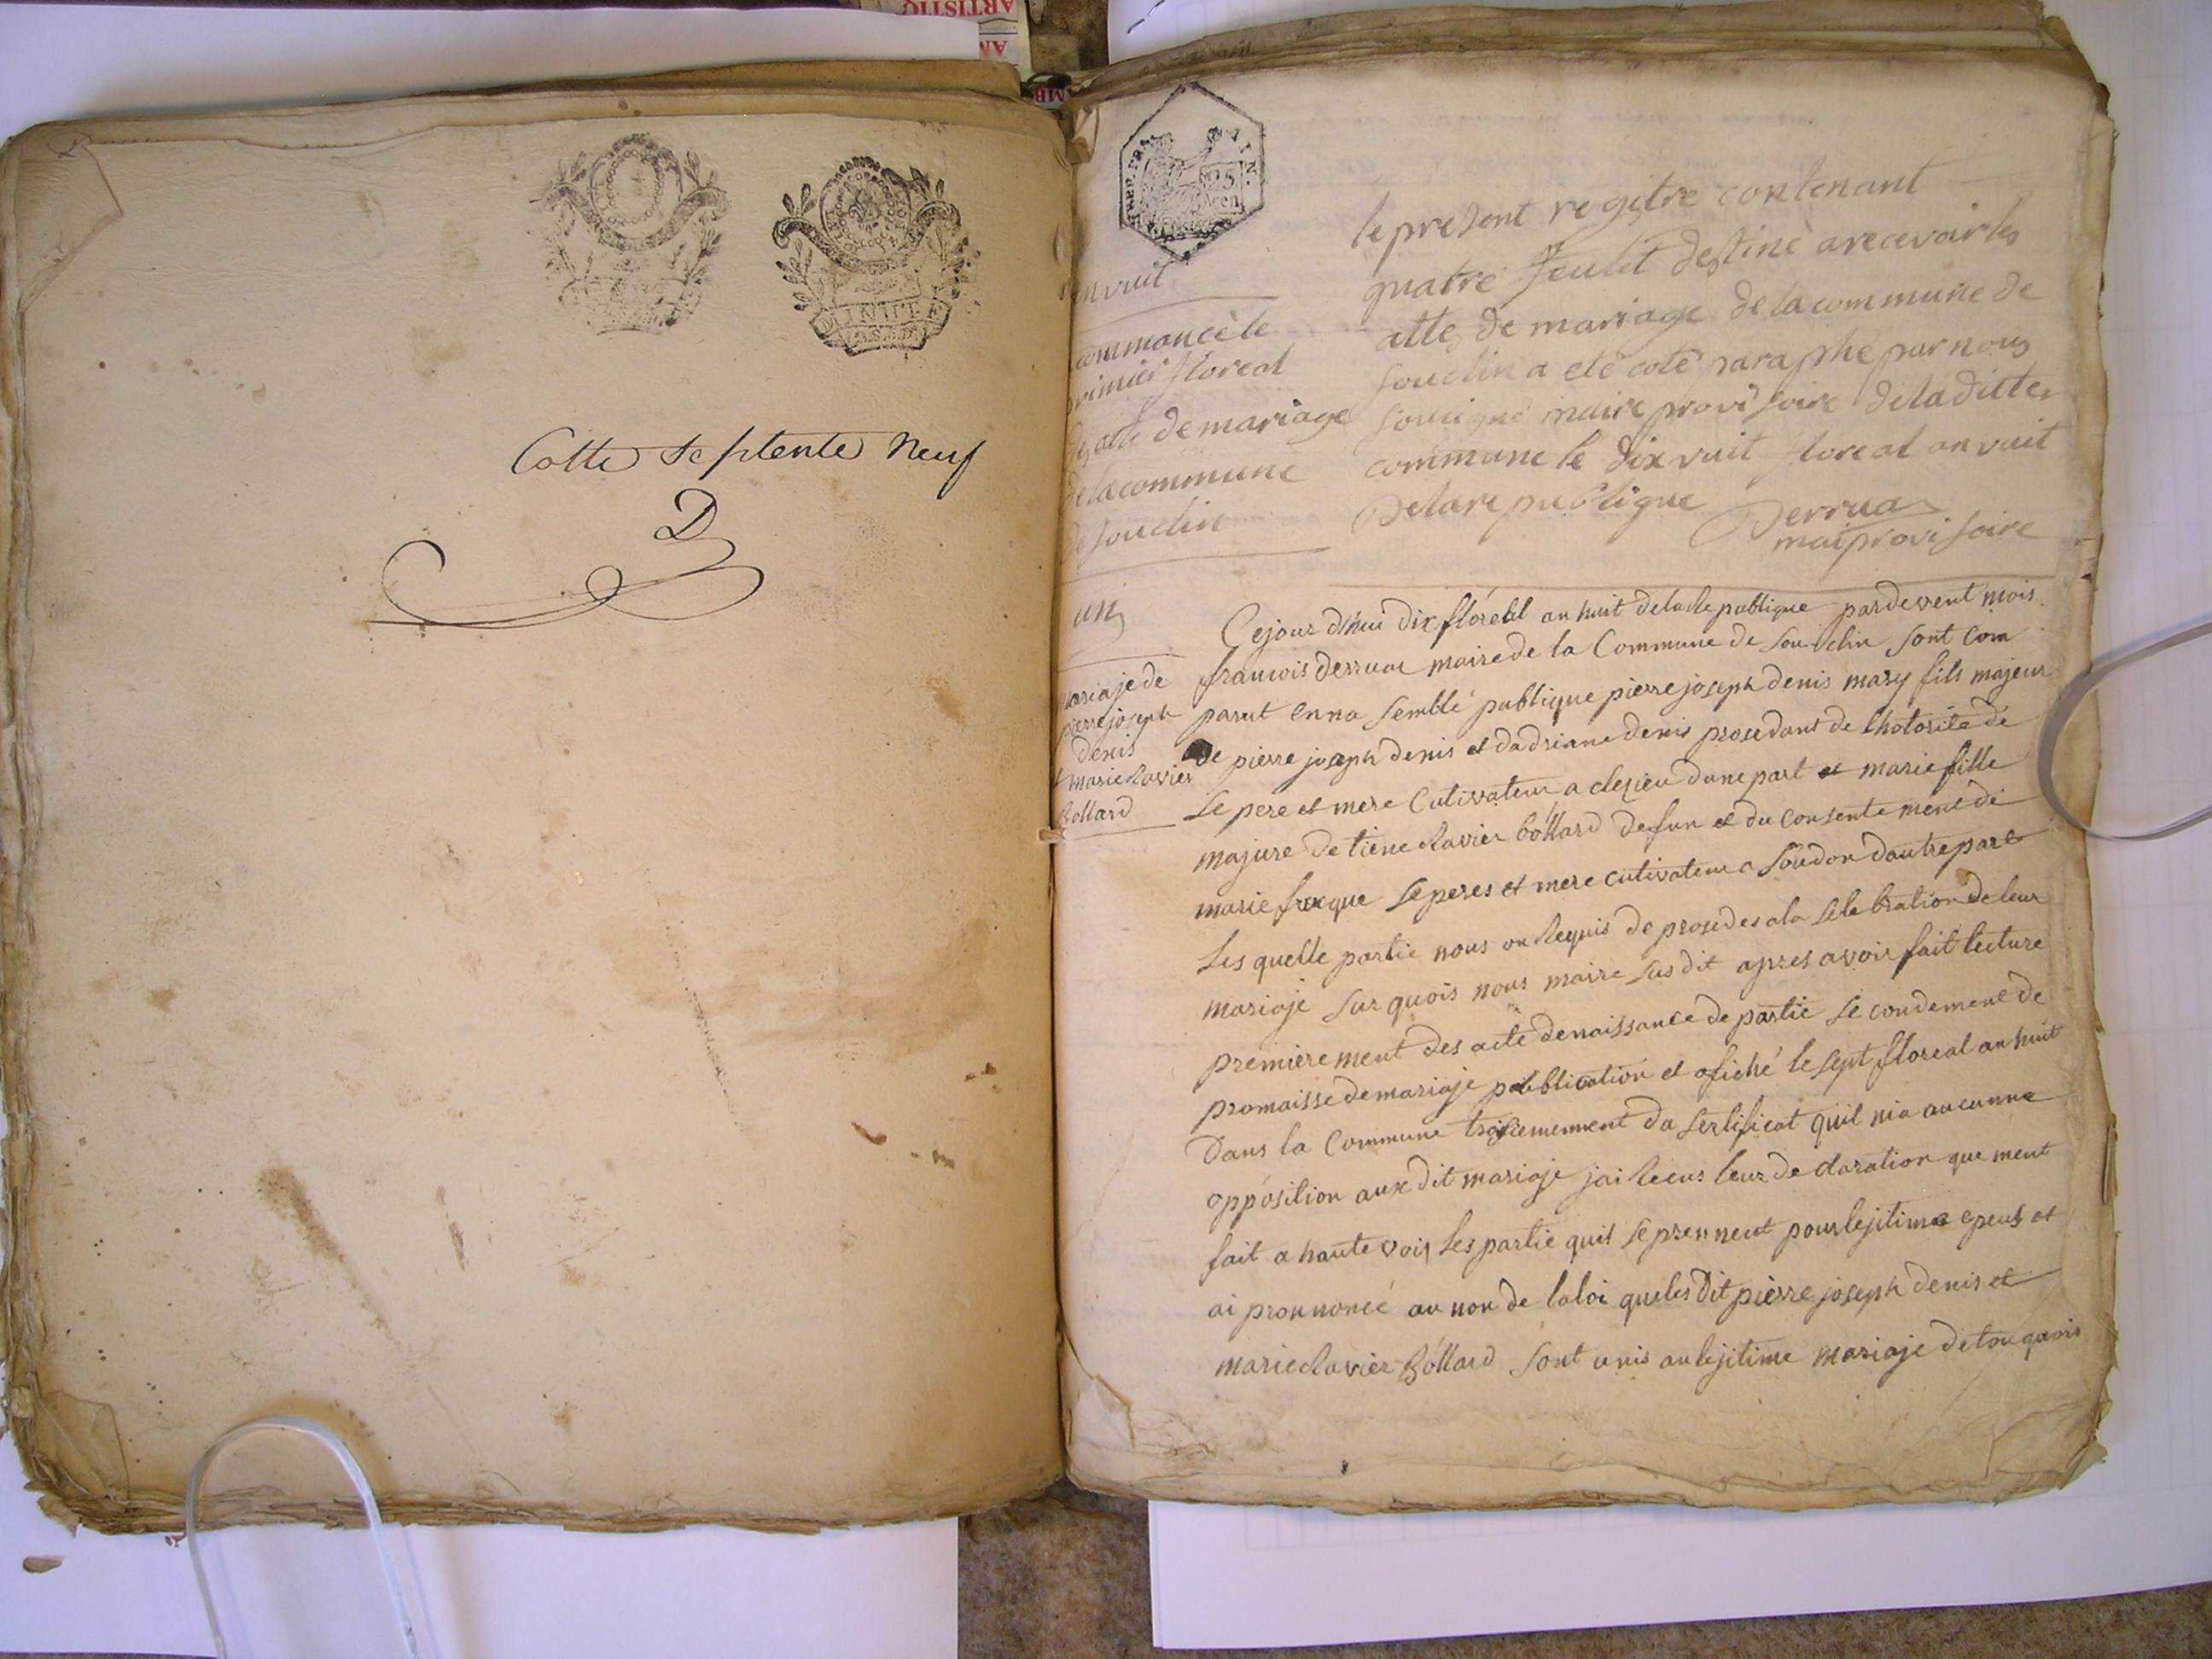 Cotte septente neuf
D
MINUTE
REP. FRA
25
Cen
an vuit
commancè le
primier floreal
des atte de mariage
de la commune
de souclin
le present regitre contenant
quatre feulit destiné a recevoir les
attes de mariage de la commune de
souclin a eté coté paraphé par nous
souligné maire provisoire de la ditte
commune le dix vuit floreal an vuit
de la republique Derruaz
mai provisoire
un
mariaje de
pierre joseph
denis
et marie Ravier
Bollard
Cejour dhui dix floreal an huit de la Republique pardevent mois
francois derruaz maire de la Commune de Souclin sont com
parut en na semblé publique pierre joseph denis mary fils majeur
de pierre joseph denis et dadriane denis prosedant de lhotorité de
se pere et mere Cutivateur a clezieu dune part et marie fille
majure de tiene Ravier bollard defun et du Consente ment de
marie se peres et mere cutivateur a Soudon dautre part
Les quelle partie nous on Requis de prosedes a la selebration de leur
mariaje sur quois nous maire susdit apres avoir fait lecture
premiere ment des acte denaissance de partie se condement de
promaisse de mariaje publication et afiché le sept floreal an huit
Dans la Commune troisiemement da sertificat quil nia aucunne
opposition aux dit mariaje jai Recus leur de claration que ment
fait a haute vois les partie quil se prennent pour lejitime epeus et
ai pronnoncé au non de la loi que les dit pierre joseph denis et
marie Ravier Bollard sont unis an lejitime mariaje de tou quois